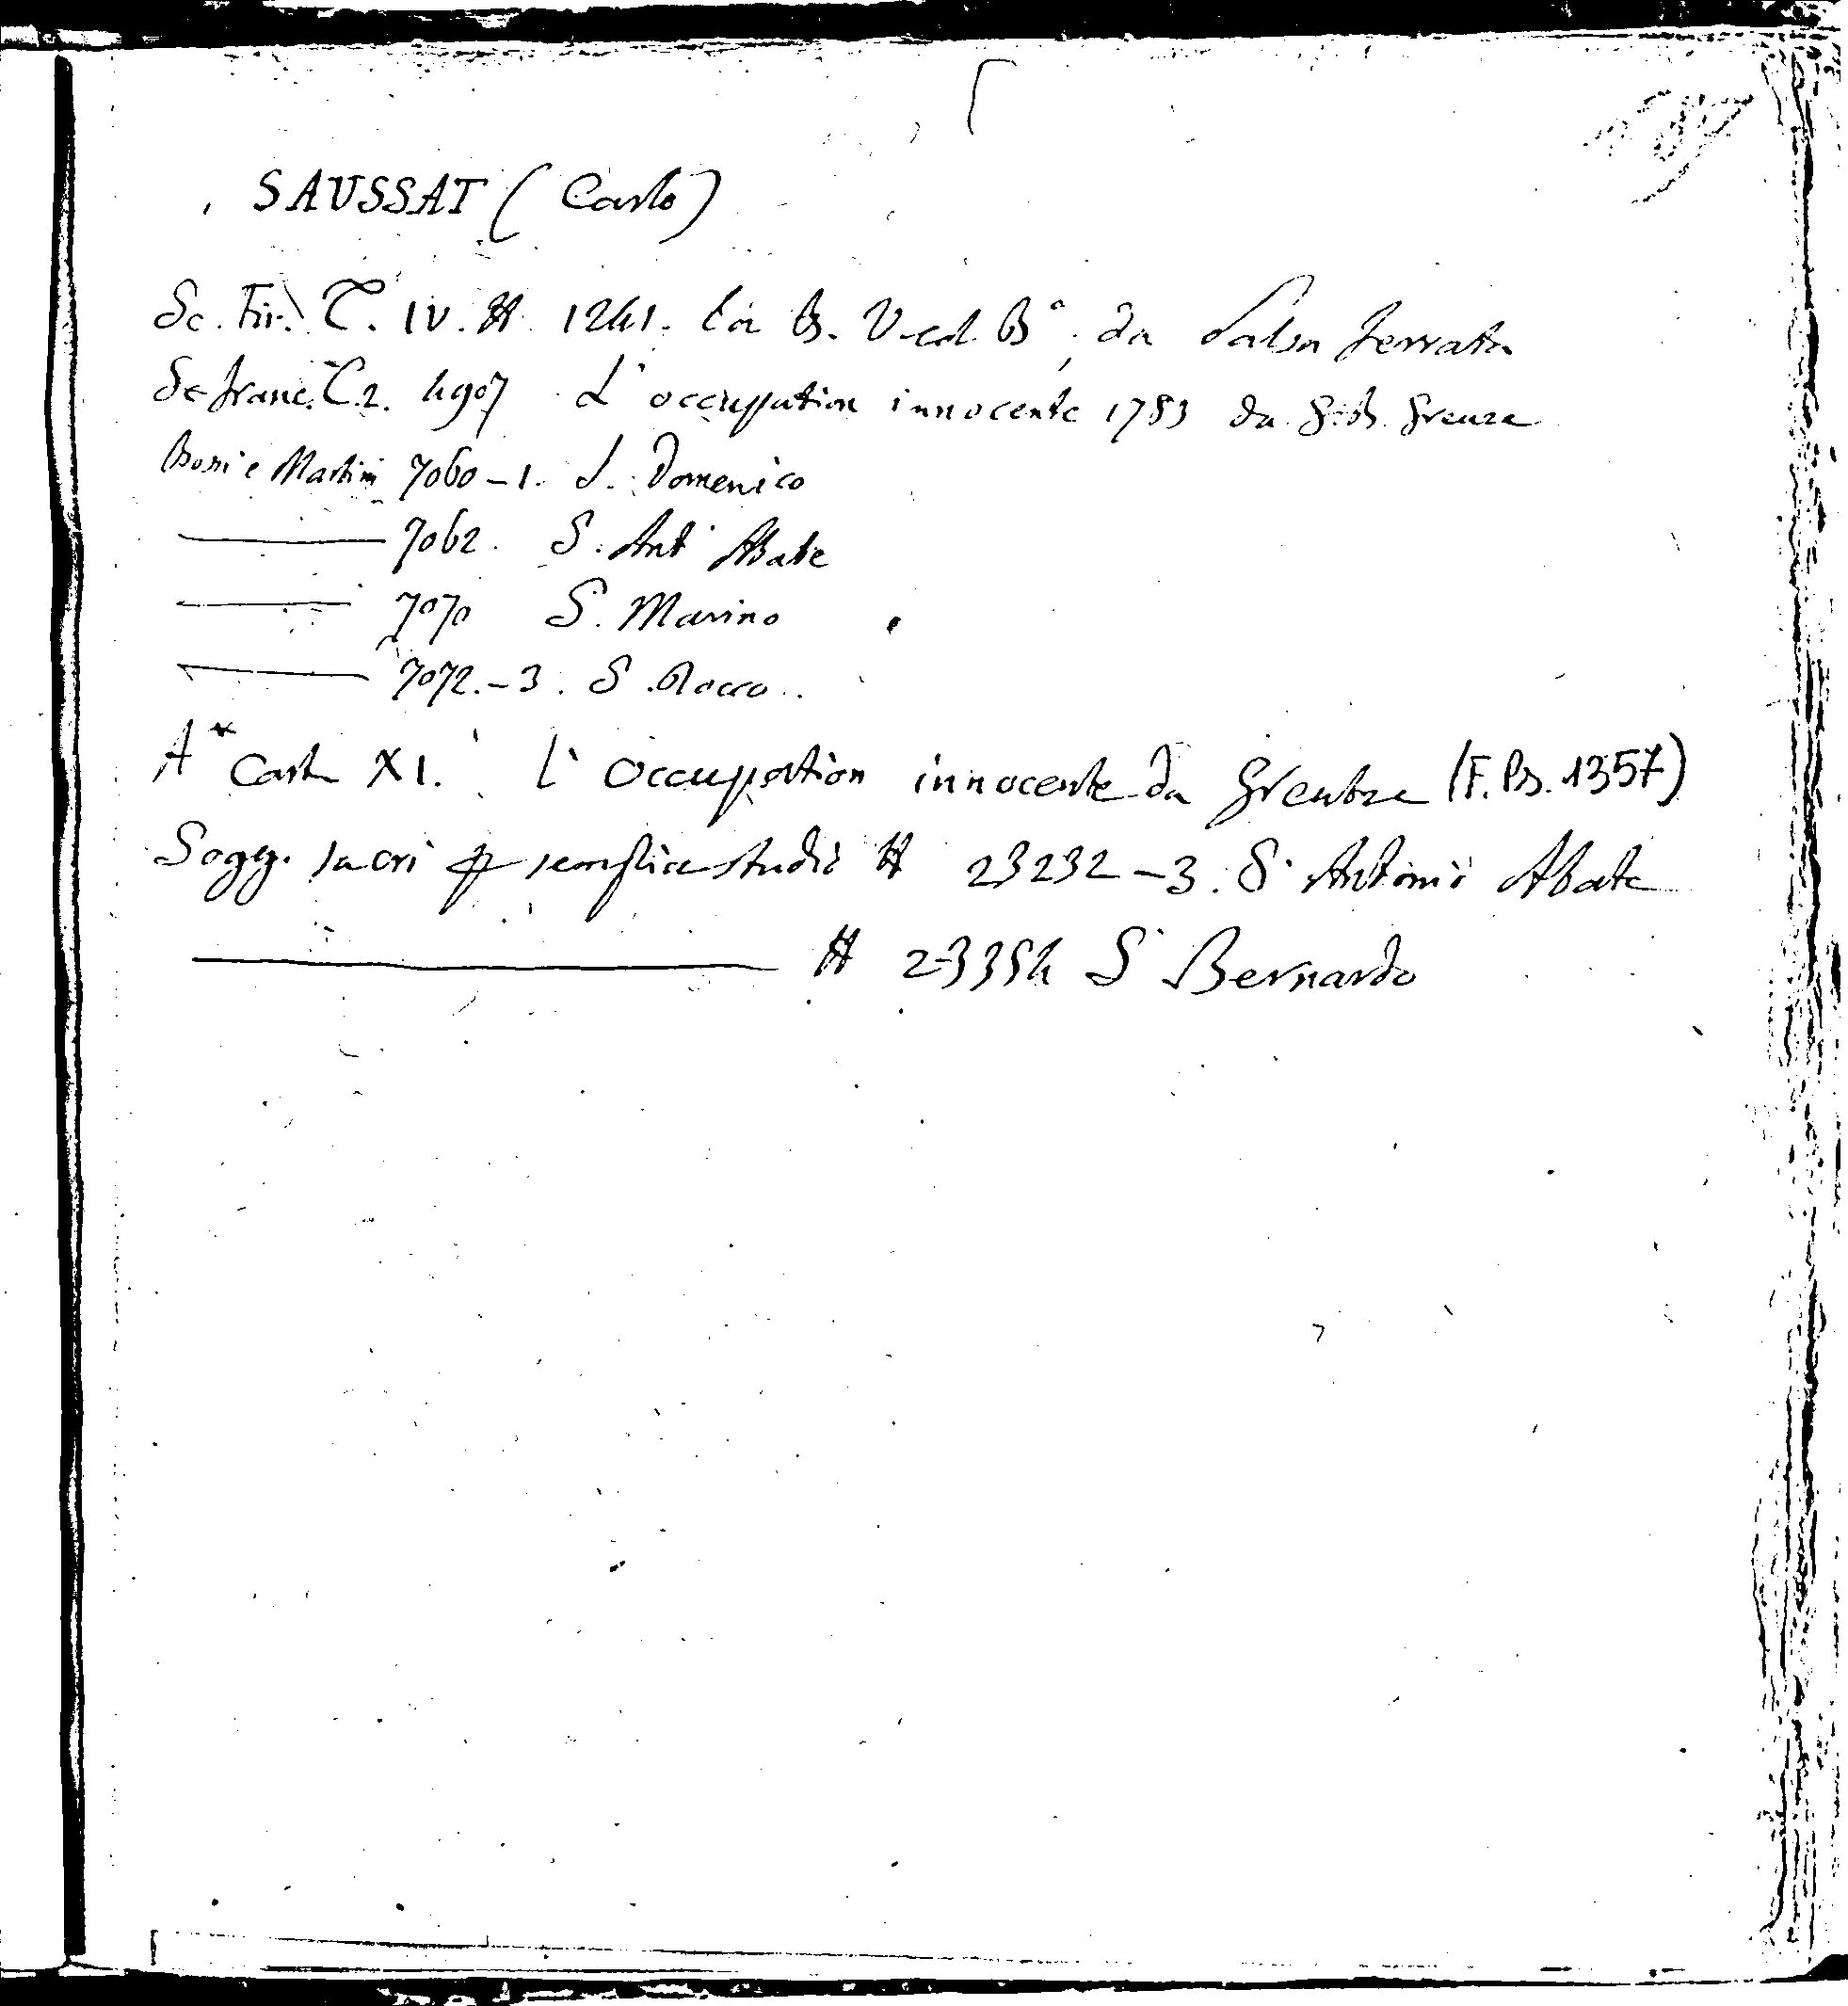 SAUSSAT (Carlo)
Sc. Fir. C. IV. # 1241. La B. V. col B°, da Salsa ferrata
Sc franc. C. 2. 4907 L'occupation innocente 1783 da G. B. Greuze
Bossi e Martini 7060-1. S. Domenico
7062. S. Ant Abate
7070 S. Marino
7072.-3. S. Rocco
A* Cart XI. L'occupation innocente da Greubze (F. Bs. 1357)
Sogg. sacri p semplice studio # 23232-3. S. Antonio Abate
# 23354 S Bernardo